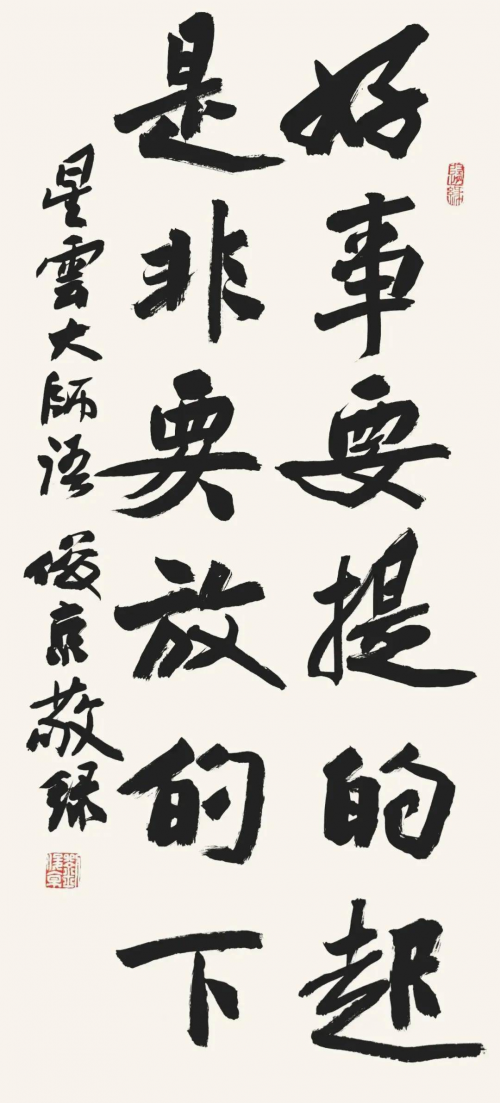 好事要提的起
是非要放的下
星雲大師語 俊京敬録